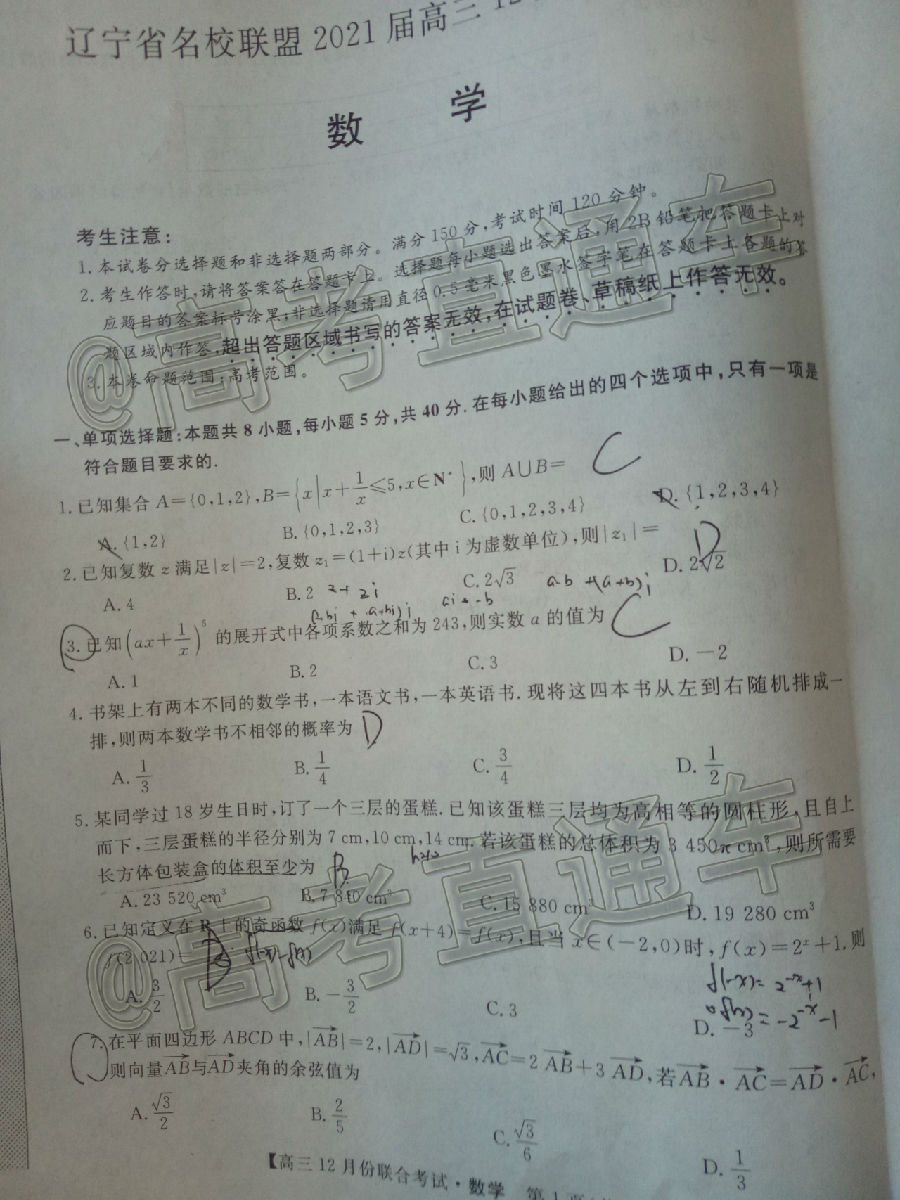 辽宁省名校联盟 2021 届高三 12
数 学
考生注意:
1. 本试卷分选择题和非选择题两部分。满分 150 分,考试时间 120 分钟。
2. 考生作答时,请将答案答在答题卡上。选择题每小题选出答案后,用 2B 铅笔把答题卡上对
应题目的答案标号涂黑;非选择题请用直径 0.5 毫米黑色墨水签字笔在答题卡上各题的答
题区域内作答,超出答题区域书写的答案无效,在试题卷、草稿纸上作答无效。
3. 本卷命题范围:高考范围。
@高考直通车
一、单项选择题:本题共 8 小题,每小题 5 分,共 40 分. 在每小题给出的四个选项中,只有一项是
符合题目要求的.
1. 已知集合 A={0,1,2},B={x|x+1/x≤5,x∈N*},则 A∪B= C
A. {1,2} B. {0,1,2,3} C. {0,1,2,3,4} D. {1,2,3,4}
2. 已知复数 z 满足|z|=2,复数 z₁=(1+i)z(其中 i 为虚数单位),则|z₁|= D
A. 4 B. 2 C. 2√3 D. 2√2
a-b+(a+b)i
3. 已知(ax+1/x)⁵ 的展开式中各项系数之和为 243,则实数 a 的值为 C
A. 1 B. 2 C. 3 D. -2
4. 书架上有两本不同的数学书,一本语文书,一本英语书. 现将这四本书从左到右随机排成一
排,则两本数学书不相邻的概率为 D
A. 1/3 B. 1/4 C. 3/4 D. 1/2
5. 某同学过 18 岁生日时,订了一个三层的蛋糕. 已知该蛋糕三层均为高相等的圆柱形,且自上
而下,三层蛋糕的半径分别为 7 cm,10 cm,14 cm. 若该蛋糕的总体积为 3 450π cm³,则所需要
长方体包装盒的体积至少为 B
A. 23 520 cm³ B. 7 840 cm³ C. 15 880 cm³ D. 19 280 cm³
@高考直通车
6. 已知定义在 R 上的奇函数 f(x)满足 f(x+4)=f(x),且当 x∈(-2,0)时,f(x)=2ˣ+1. 则
f(2 021)=
f(-x)=2⁻ˣ+1
A. 3/2 B. -3/2 C. 3 D. -3
=-2⁻ˣ-1
7. 在平面四边形 ABCD 中,|AB→|=2,|AD→|=√3,AC→=2AB→+3AD→,若AB→·AC→=AD→·AC→,
则向量AB→与AD→夹角的余弦值为
A. √3/2 B. 2/5 C. √3/6 D. 1/3
【高三 12 月份联合考试·数学 第 1 页